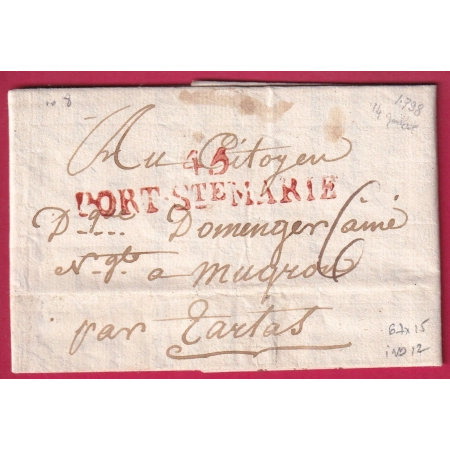 1798
Au Citoyen
45
PORT-STE MARIE
Domenger ainé 6
Ngt a Mugron
par Tartas
67x15
ind 12